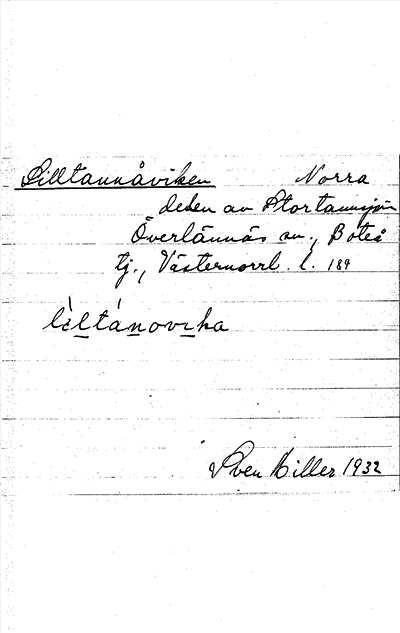 Lilltannåviken Norra
delen av Stortannsjön
Överlännäs sn., Boteå
tj., Västernorrl. l. 189
lìltánovika
Sven Hiller 1932